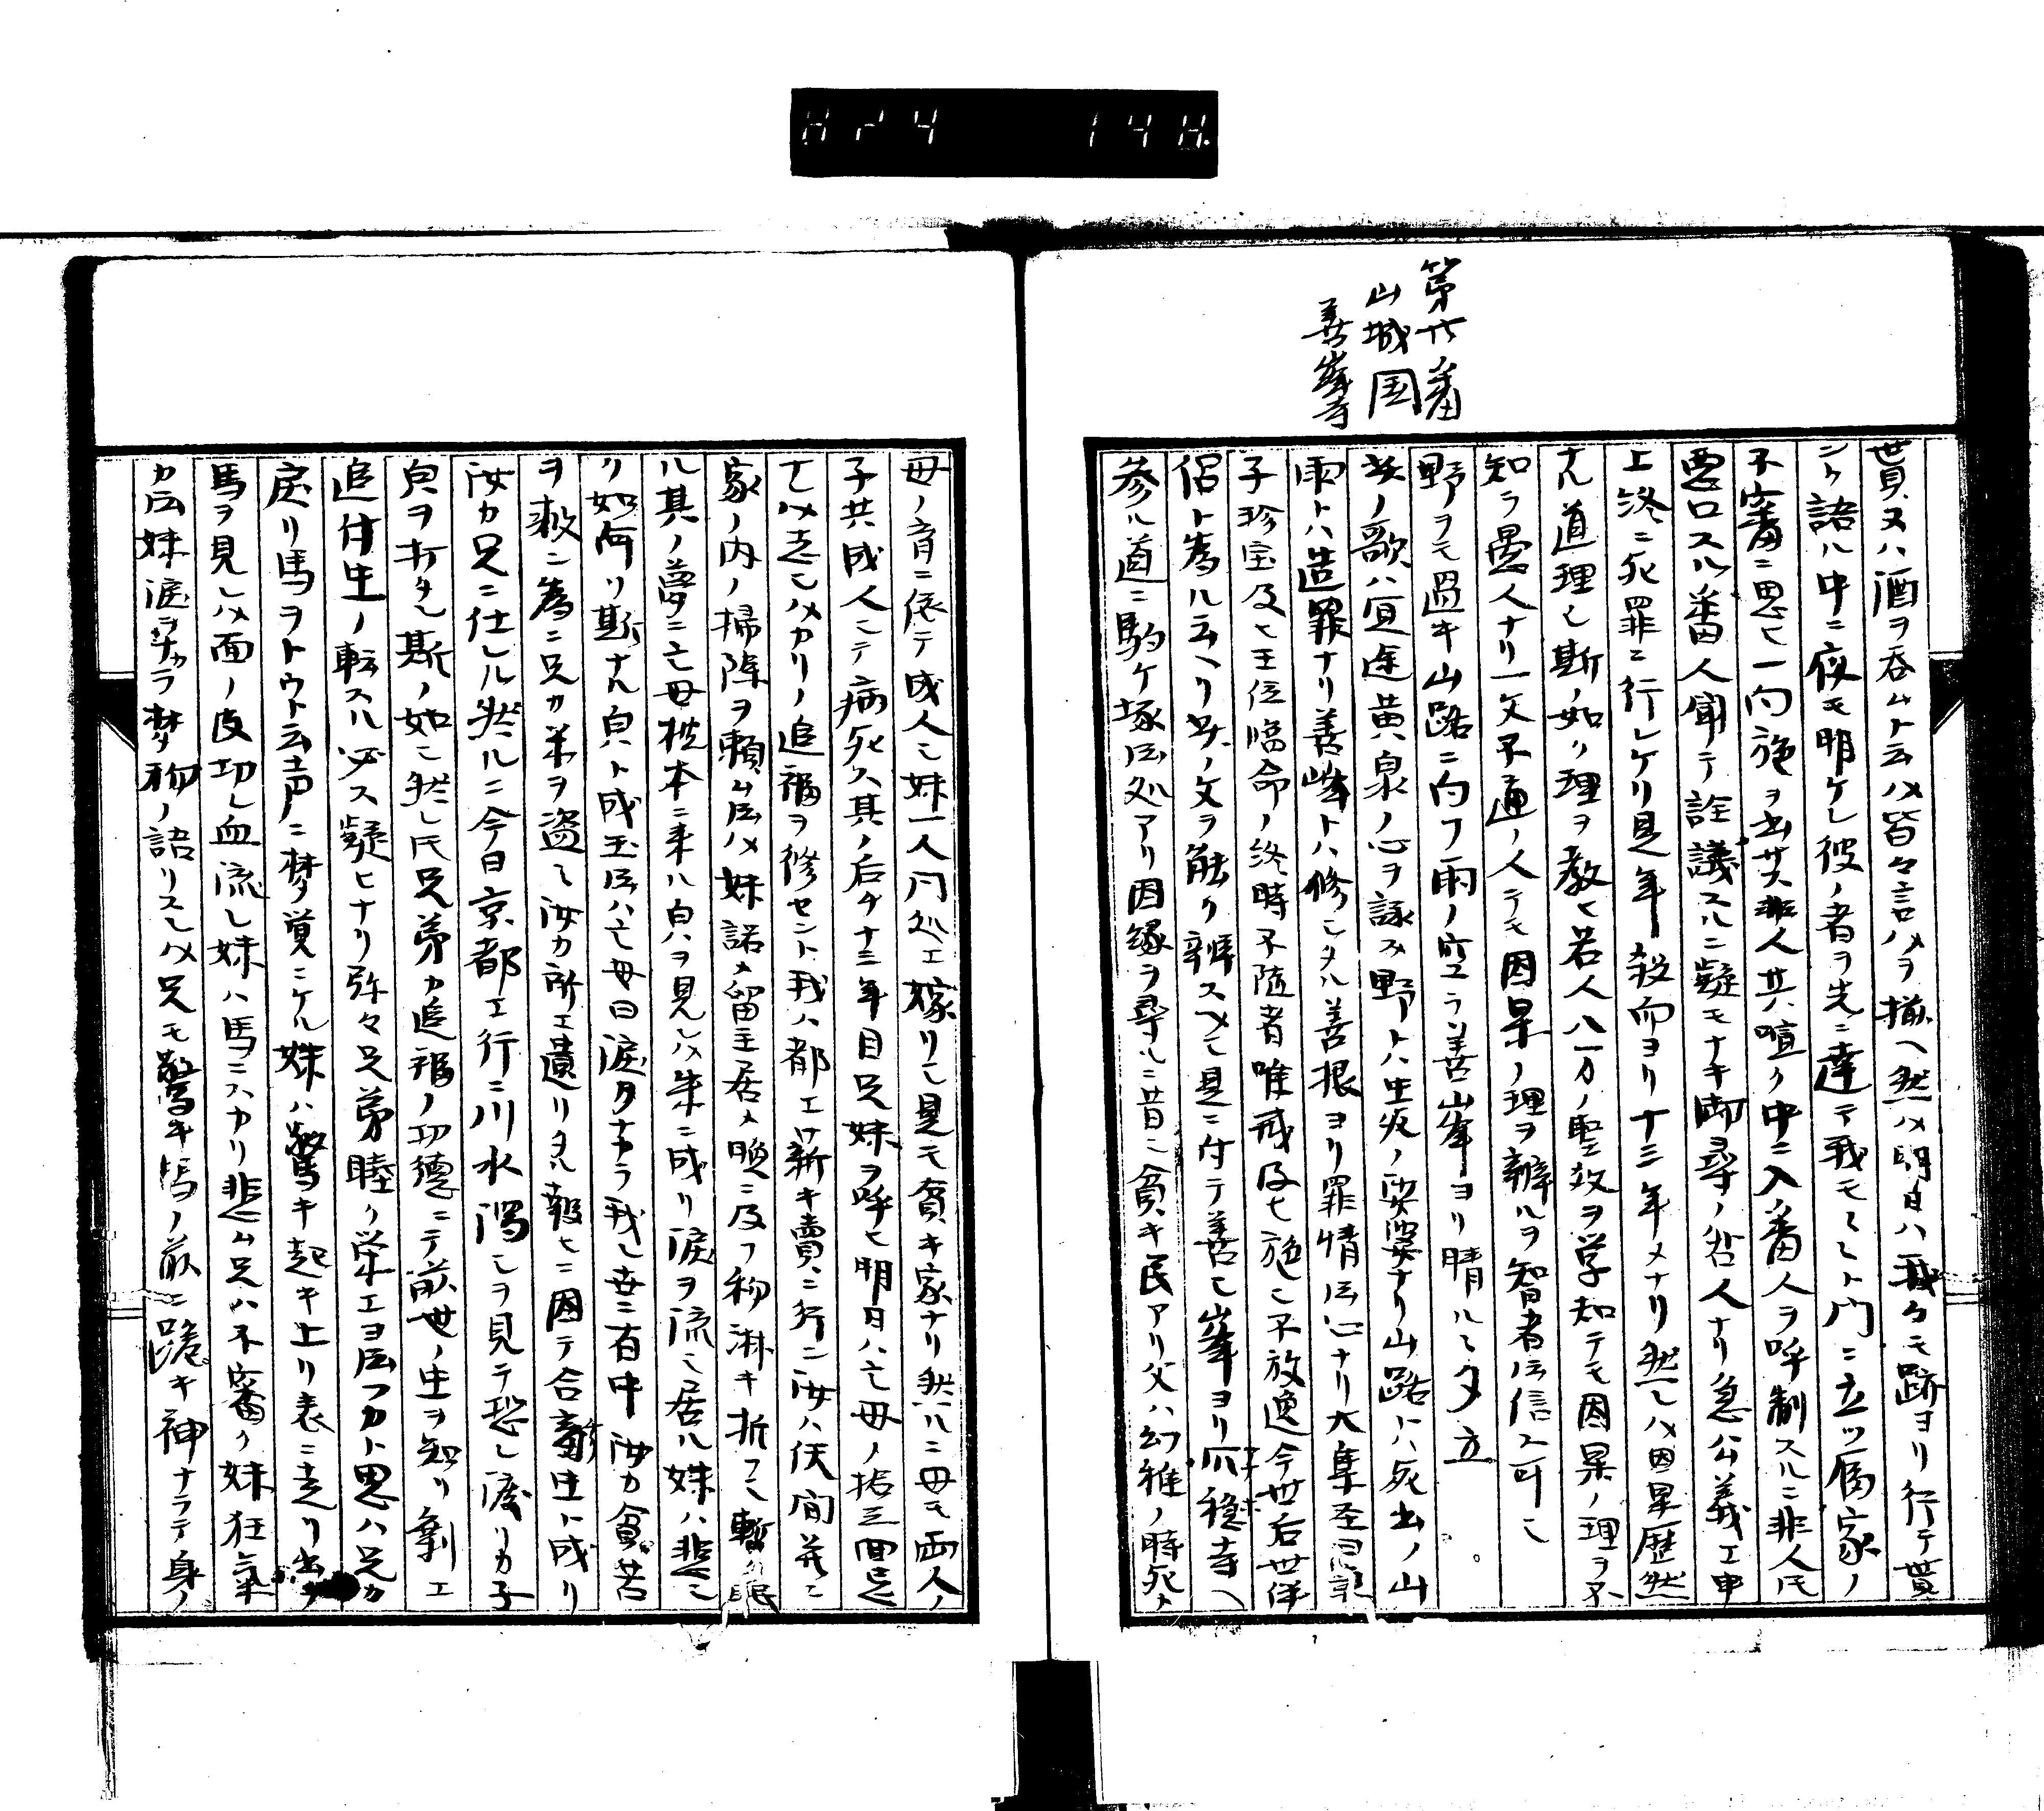 第廿番
山城国
善峯寺
貰又ハ酒ヲ呑ムト云ハ皆々言ハヲ揃ヘ然ハ明日ハ我々モ跡ヨリ行テ貰
ンケ語ル中ニ夜モ明ケレ彼ノ者ヲ先ニ達テ我モ〳〵ト門ニ立ツ富家ノ
不審ニ思ヒ一向施ヲ出サス非人共喧ク中ニ入ノ番人ヲ呼制スルニ非人氏
悪口スル番人聞テ詮議スルニ疑モナキ御尋ノ咎人ナリ急公義エ申
上終ニ死罪ニ行レケリ是年殺而ヨリ十三年メナリ然レハ因果歴然
ナル道理也斯ノ如ク理ヲ教ヒ若人八万ノ聖教ヲ学知テモ因果ノ理ヲ不
知ラ愚人ナリ一文不通ノ人テモ因果ノ理ヲ辨ルヲ智者伝信ス可シ
野ヲモ過キ山路ニ向フ雨ノ空ラ善峯ヨリ晴ルヽ夕立
此ノ歌ハ冥途黄泉ノ心ヲ詠ス野トハ生死ノ娑婆ナリ山路トハ死出ノ山
雨トハ造罪ナリ善峰トハ修シタル善根ヨリ罪情伝心ナリ大集圣曰妻
子珍宝及ヒ王位臨命ノ終時不随者唯戒及ヒ施シ不放逸今世后世伴
侶ト為ル云ヘリ此ノ文ヲ能ク辨スヘシ是ニ付テ善シ峯ヨリ穏寺ヘ
参ル道ニ駒ケ塚伝処アリ因縁ヲ尋ルニ昔シ貧キ民アリ父ハ幻稚ノ時死ス
母ノ育ニ依テ成人シ妹一人同処エ嫁リシ是モ貧キ家ナリ然ルニ母モ両人ノ
子共成人シテ病死ス其ノ后チ十三年目兄妹ヲ呼ヒ明日ハ亡母ノ拾三回忌
ナレハ志シハカリノ追福ヲ修セント我ハ都エ薪キ賣ニ行ニ汝ハ伏間先ニ
家ノ内ノ掃除ヲ頼ム伝ハ妹諾メ留主居メ晩ニ及フ物淋キ折フシ暫ク眠
ル其ノ夢ニ亡母枕本ニ来ル貞ヲ見レハ朱ニ成リ涙ヲ流シ居ル妹ハ悲シ
リ如何リ斯ナル貞ト成玉伝ハ亡母曰涙タナカラ我レ世ニ有中汝カ貧苦
ヲ救ニ為ニ兄カ米ヲ盗シ汝カ所エ遺リタル報ヒニ因テ今畜生ト成リ
汝カ兄ニ仕ル然ルニ今日京都エ行ニ川水濁シヲ見テ恐レ渡リカ子
貞ヲ打タレ斯ノ如シ然レ氏兄弟カ追福ノ功徳ニテ前世ノ生ヲ知リ剰エ
追付生ノ転スル必ス疑ヒナリ弥々兄弟睦ク栄エヨ伝フカト思ハ兄カ
戻リ馬ヲトウト云声ニ夢覚ニケル妹ハ驚キ起キ上リ表ニ走リ出テ
馬ヲ見レハ面ノ皮切レ血流レ妹ハ馬ニスカリ悲ム兄ハ不審ク妹狂氣
カ伝妹涙ヲナカラ夢物ノ語リスレハ兄モ驚キ馬ノ前エ跪キ神ナラテ身ノ